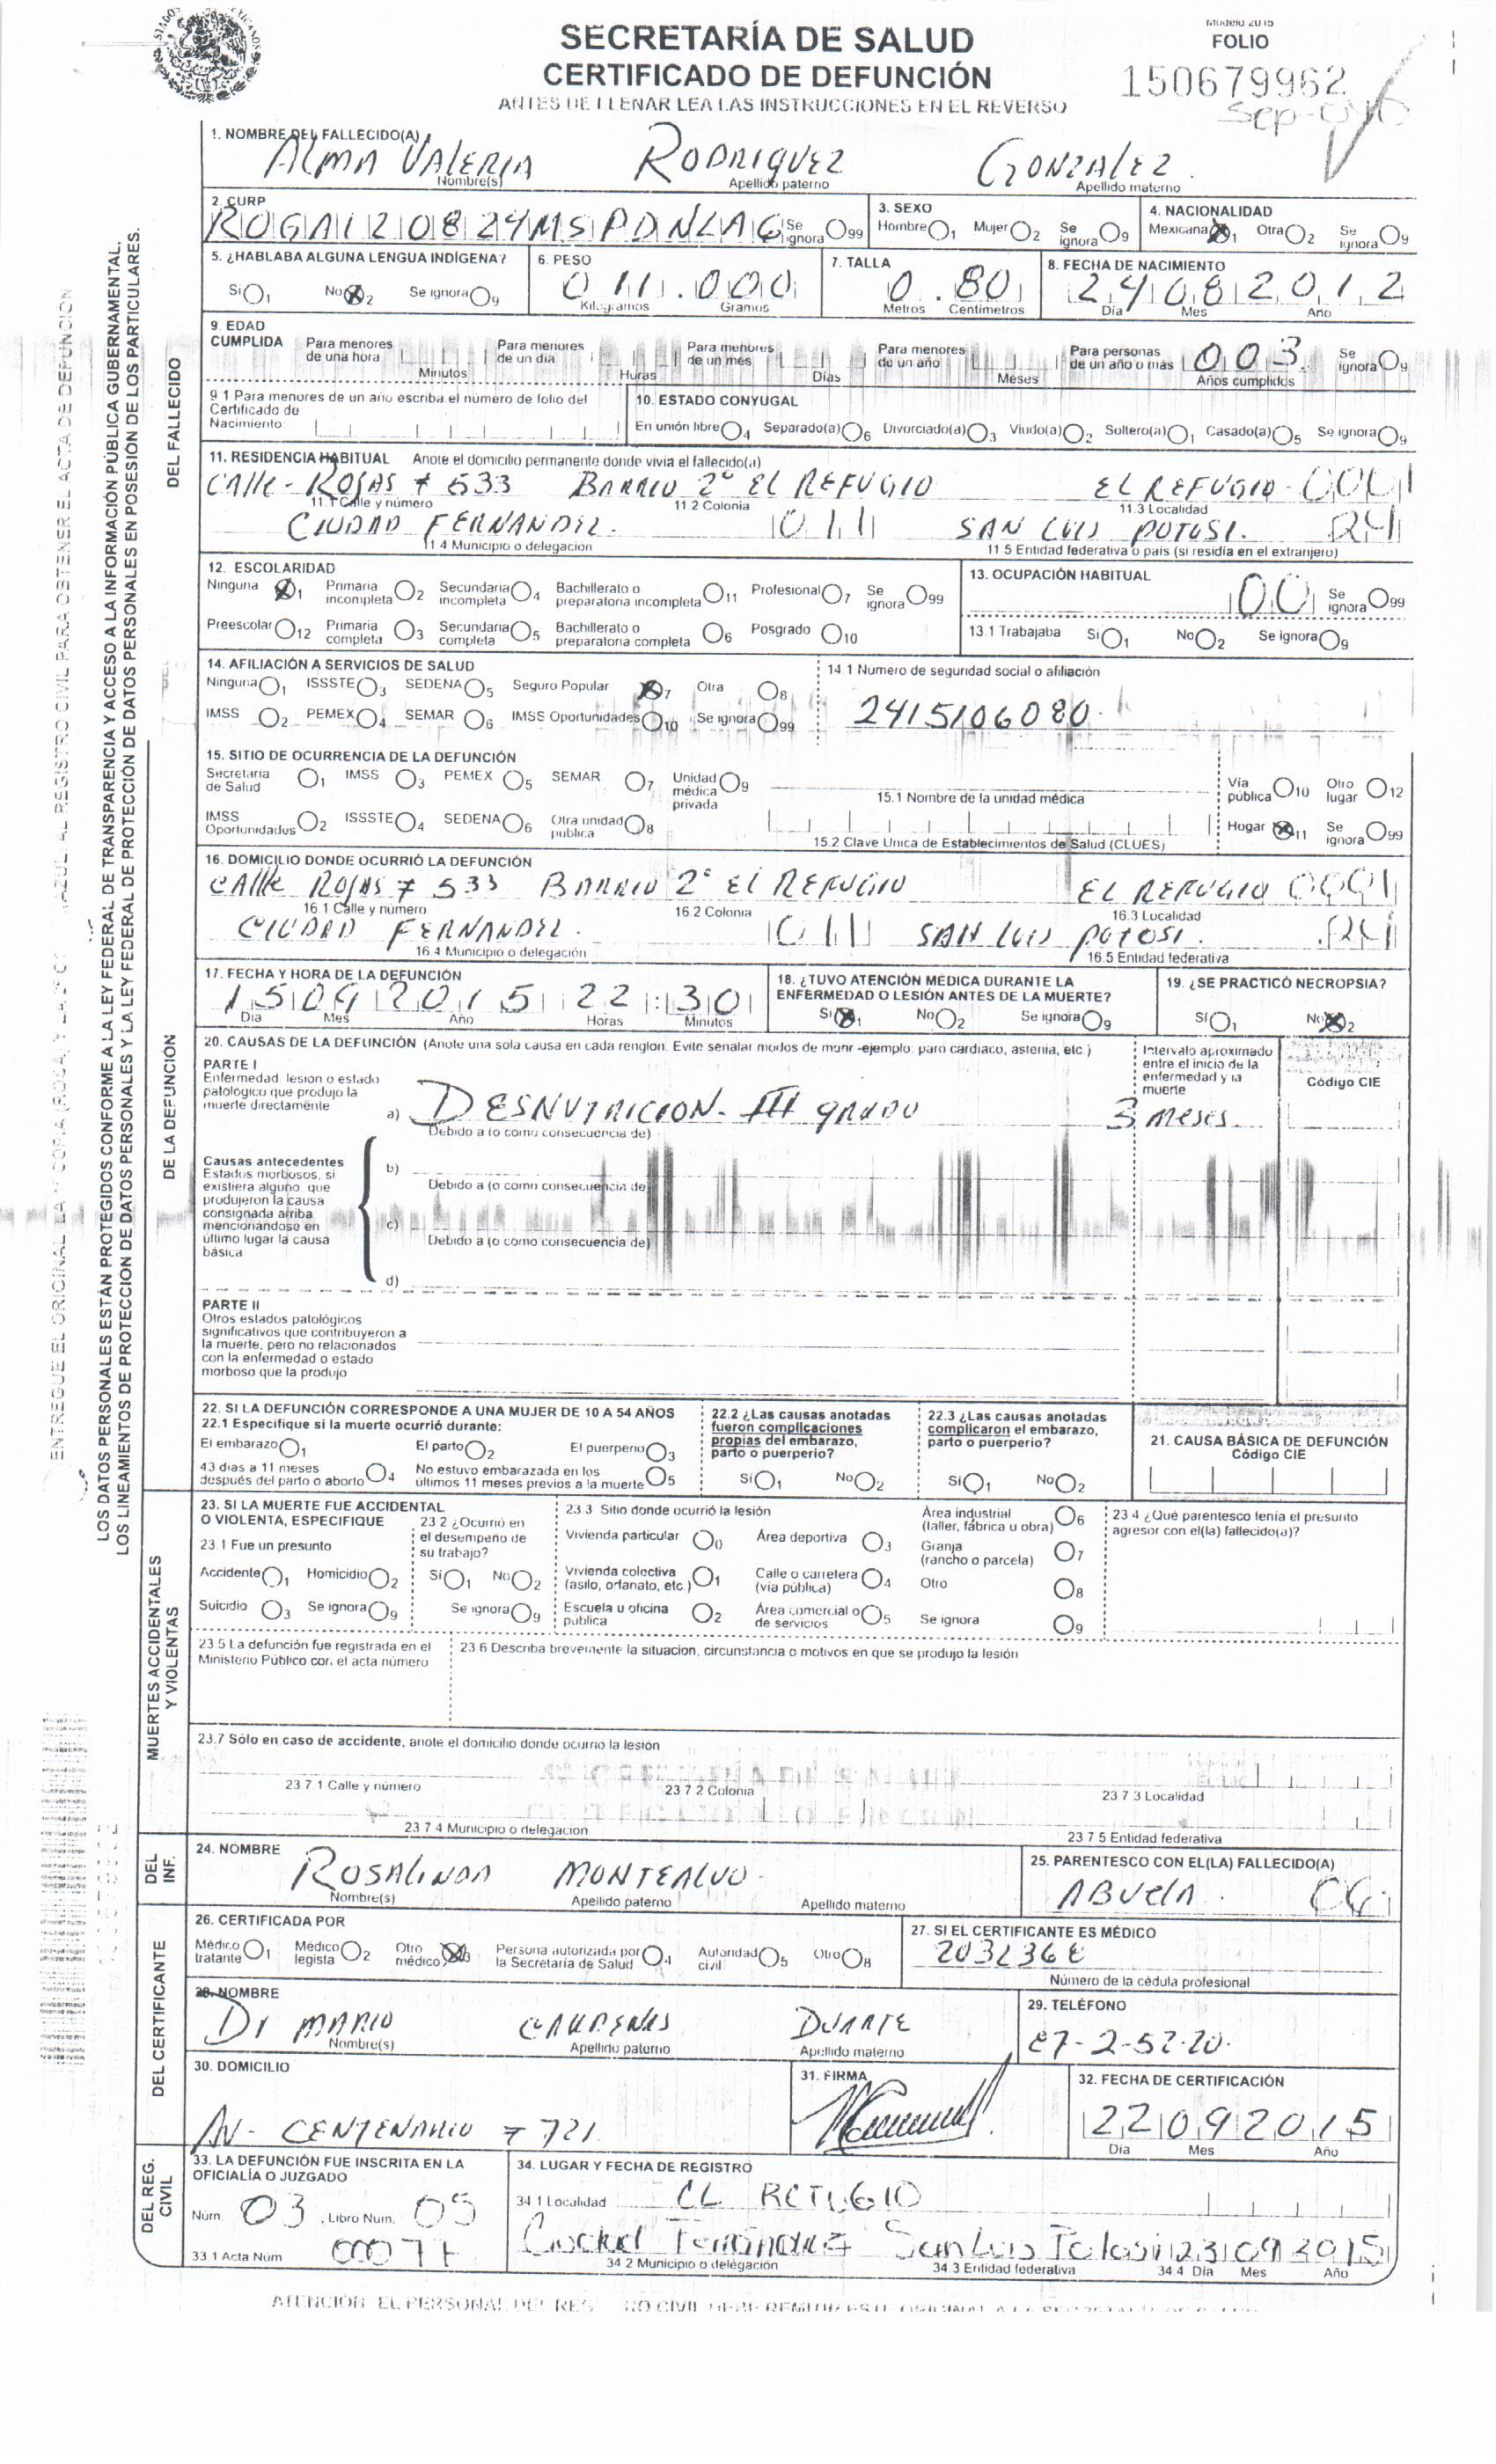 Modelo 2015
SECRETARÍA DE SALUD
FOLIO
CERTIFICADO DE DEFUNCIÓN
150679962
ANTES DE LLENAR LEA LAS INSTRUCCIONES EN EL REVERSO
1. NOMBRE DEL FALLECIDO(A)
ALMA VALERIA RODRIGUEZ GONZALEZ
Nombre(s) Apellido paterno Apellido materno
2. CURP 3. SEXO 4. NACIONALIDAD
ROGA120824MSPDNLA6 Se ignora 99 Hombre 1 Mujer 2 Se ignora 9 Mexicana 1 Otra 2 Se ignora 9
5. ¿HABLABA ALGUNA LENGUA INDÍGENA? 6. PESO 7. TALLA 8. FECHA DE NACIMIENTO
Sí 1 No 2 Se ignora 9 011.000 0.80 24082012
Kilogramos Gramos Metros Centímetros Día Mes Año
9. EDAD CUMPLIDA Para menores de una hora Para menores de un día Para menores de un mes Para menores de un año Para personas de un año o más 003 Se ignora 9
Minutos Horas Días Meses Años cumplidos
9.1 Para menores de un año escriba el número de folio del Certificado de Nacimiento: 10. ESTADO CONYUGAL
En unión libre 4 Separado(a) 6 Divorciado(a) 3 Viudo(a) 2 Soltero(a) 1 Casado(a) 5 Se ignora 9
11. RESIDENCIA HABITUAL Anote el domicilio permanente donde vivía el fallecido(a)
CALLE - ROJAS # 533 BARRIO 2° EL REFUGIO EL REFUGIO - 0001
11.1 Calle y número 11.2 Colonia 11.3 Localidad
CIUDAD FERNANDEZ. 011 SAN LUIS POTOSI. 24
11.4 Municipio o delegación 11.5 Entidad federativa o país (si residía en el extranjero)
12. ESCOLARIDAD 13. OCUPACIÓN HABITUAL
Ninguna 1 Primaria incompleta 2 Secundaria incompleta 4 Bachillerato o preparatoria incompleta 11 Profesional 7 Se ignora 99 00 Se ignora 99
Preescolar 12 Primaria completa 3 Secundaria completa 5 Bachillerato o preparatoria completa 6 Posgrado 10 13.1 Trabajaba Sí 1 No 2 Se ignora 9
14. AFILIACIÓN A SERVICIOS DE SALUD 14.1 Número de seguridad social o afiliación
Ninguna 1 ISSSTE 3 SEDENA 5 Seguro Popular 7 Otra 8
IMSS 2 PEMEX 4 SEMAR 6 IMSS Oportunidades 10 Se ignora 99 2415106080
15. SITIO DE OCURRENCIA DE LA DEFUNCIÓN
Secretaría de Salud 1 IMSS 3 PEMEX 5 SEMAR 7 Unidad médica privada 9 Vía pública 10 Otro lugar 12
15.1 Nombre de la unidad médica
IMSS Oportunidades 2 ISSSTE 4 SEDENA 6 Otra unidad pública 8 Hogar 11 Se ignora 99
15.2 Clave Única de Establecimientos de Salud (CLUES)
16. DOMICILIO DONDE OCURRIÓ LA DEFUNCIÓN
CALLE ROJAS # 533 BARRIO 2° EL REFUGIO EL REFUGIO 0001
16.1 Calle y número 16.2 Colonia 16.3 Localidad
CIUDAD FERNANDEZ. 011 SAN LUIS POTOSI. 24
16.4 Municipio o delegación 16.5 Entidad federativa
17. FECHA Y HORA DE LA DEFUNCIÓN 18. ¿TUVO ATENCIÓN MÉDICA DURANTE LA ENFERMEDAD O LESIÓN ANTES DE LA MUERTE? 19. ¿SE PRACTICÓ NECROPSIA?
15092015 22:30 Sí 1 No 2 Se ignora 9 Sí 1 No 2
Día Mes Año Horas Minutos
20. CAUSAS DE LA DEFUNCIÓN (Anote una sola causa en cada renglón. Evite señalar modos de morir -ejemplo: paro cardiaco, astenia, etc.) Intervalo aproximado entre el inicio de la enfermedad y la muerte Código CIE
PARTE I
Enfermedad, lesión o estado patológico que produjo la muerte directamente
a) DESNUTRICION - III grado 3 meses.
Debido a (o como consecuencia de)
Causas antecedentes
Estados morbosos, si existiera alguno, que produjeron la causa consignada arriba mencionándose en último lugar la causa básica
b)
Debido a (o como consecuencia de)
c)
Debido a (o como consecuencia de)
d)
PARTE II
Otros estados patológicos significativos que contribuyeron a la muerte, pero no relacionados con la enfermedad o estado morboso que la produjo
22. SI LA DEFUNCIÓN CORRESPONDE A UNA MUJER DE 10 A 54 AÑOS
22.1 Especifique si la muerte ocurrió durante:
El embarazo 1 El parto 2 El puerperio 3
43 días a 11 meses después del parto o aborto 4 No estuvo embarazada en los últimos 11 meses previos a la muerte 5
22.2 ¿Las causas anotadas fueron complicaciones propias del embarazo, parto o puerperio?
Sí 1 No 2
22.3 ¿Las causas anotadas complicaron el embarazo, parto o puerperio?
Sí 1 No 2
21. CAUSA BÁSICA DE DEFUNCIÓN
Código CIE
23. SI LA MUERTE FUE ACCIDENTAL O VIOLENTA, ESPECIFIQUE
23.1 Fue un presunto
Accidente 1 Homicidio 2
Suicidio 3 Se ignora 9
23.2 ¿Ocurrió en el desempeño de su trabajo?
Sí 1 No 2
Se ignora 9
23.3 Sitio donde ocurrió la lesión
Vivienda particular 0 Área deportiva 3 Área industrial (taller, fábrica u obra) 6
Vivienda colectiva (asilo, orfanato, etc.) 1 Calle o carretera (vía pública) 4 Granja (rancho o parcela) 7
Escuela u oficina pública 2 Área comercial o de servicios 5 Otro 8
Se ignora 9
23.4 ¿Qué parentesco tenía el presunto agresor con el(la) fallecido(a)?
23.5 La defunción fue registrada en el Ministerio Público con el acta número
23.6 Describa brevemente la situación, circunstancia o motivos en que se produjo la lesión
23.7 Sólo en caso de accidente, anote el domicilio donde ocurrió la lesión
23.7.1 Calle y número 23.7.2 Colonia 23.7.3 Localidad
23.7.4 Municipio o delegación 23.7.5 Entidad federativa
24. NOMBRE 25. PARENTESCO CON EL(LA) FALLECIDO(A)
ROSALINDA MONTEALVO ABUELA.
Nombre(s) Apellido paterno Apellido materno
26. CERTIFICADA POR 27. SI EL CERTIFICANTE ES MÉDICO
Médico tratante 1 Médico legista 2 Otro médico 3 Persona autorizada por la Secretaría de Salud 4 Autoridad civil 5 Otro 8
Número de la cédula profesional
28. NOMBRE 29. TELÉFONO
Dr MARIO CARDENAS DUARTE
Nombre(s) Apellido paterno Apellido materno
30. DOMICILIO 31. FIRMA 32. FECHA DE CERTIFICACIÓN
AV - CENTENARIO # 721 22092015
Día Mes Año
33. LA DEFUNCIÓN FUE INSCRITA EN LA OFICIALÍA O JUZGADO 34. LUGAR Y FECHA DE REGISTRO
Núm. 03, Libro Núm. 05 34.1 Localidad EL REFUGIO
33.1 Acta Núm Ciudad Fernández San Luis Potosi 23092015
34.2 Municipio o delegación 34.3 Entidad federativa 34.4 Día Mes Año
DEL FALLECIDO
DE LA DEFUNCIÓN
MUERTES ACCIDENTALES Y VIOLENTAS
DEL INF.
DEL CERTIFICANTE
DEL REG. CIVIL
LOS DATOS PERSONALES ESTÁN PROTEGIDOS CONFORME A LA LEY FEDERAL DE TRANSPARENCIA Y ACCESO A LA INFORMACIÓN PÚBLICA GUBERNAMENTAL,
LOS LINEAMIENTOS DE PROTECCIÓN DE DATOS PERSONALES Y LA LEY FEDERAL DE PROTECCIÓN DE DATOS PERSONALES EN POSESIÓN DE LOS PARTICULARES.